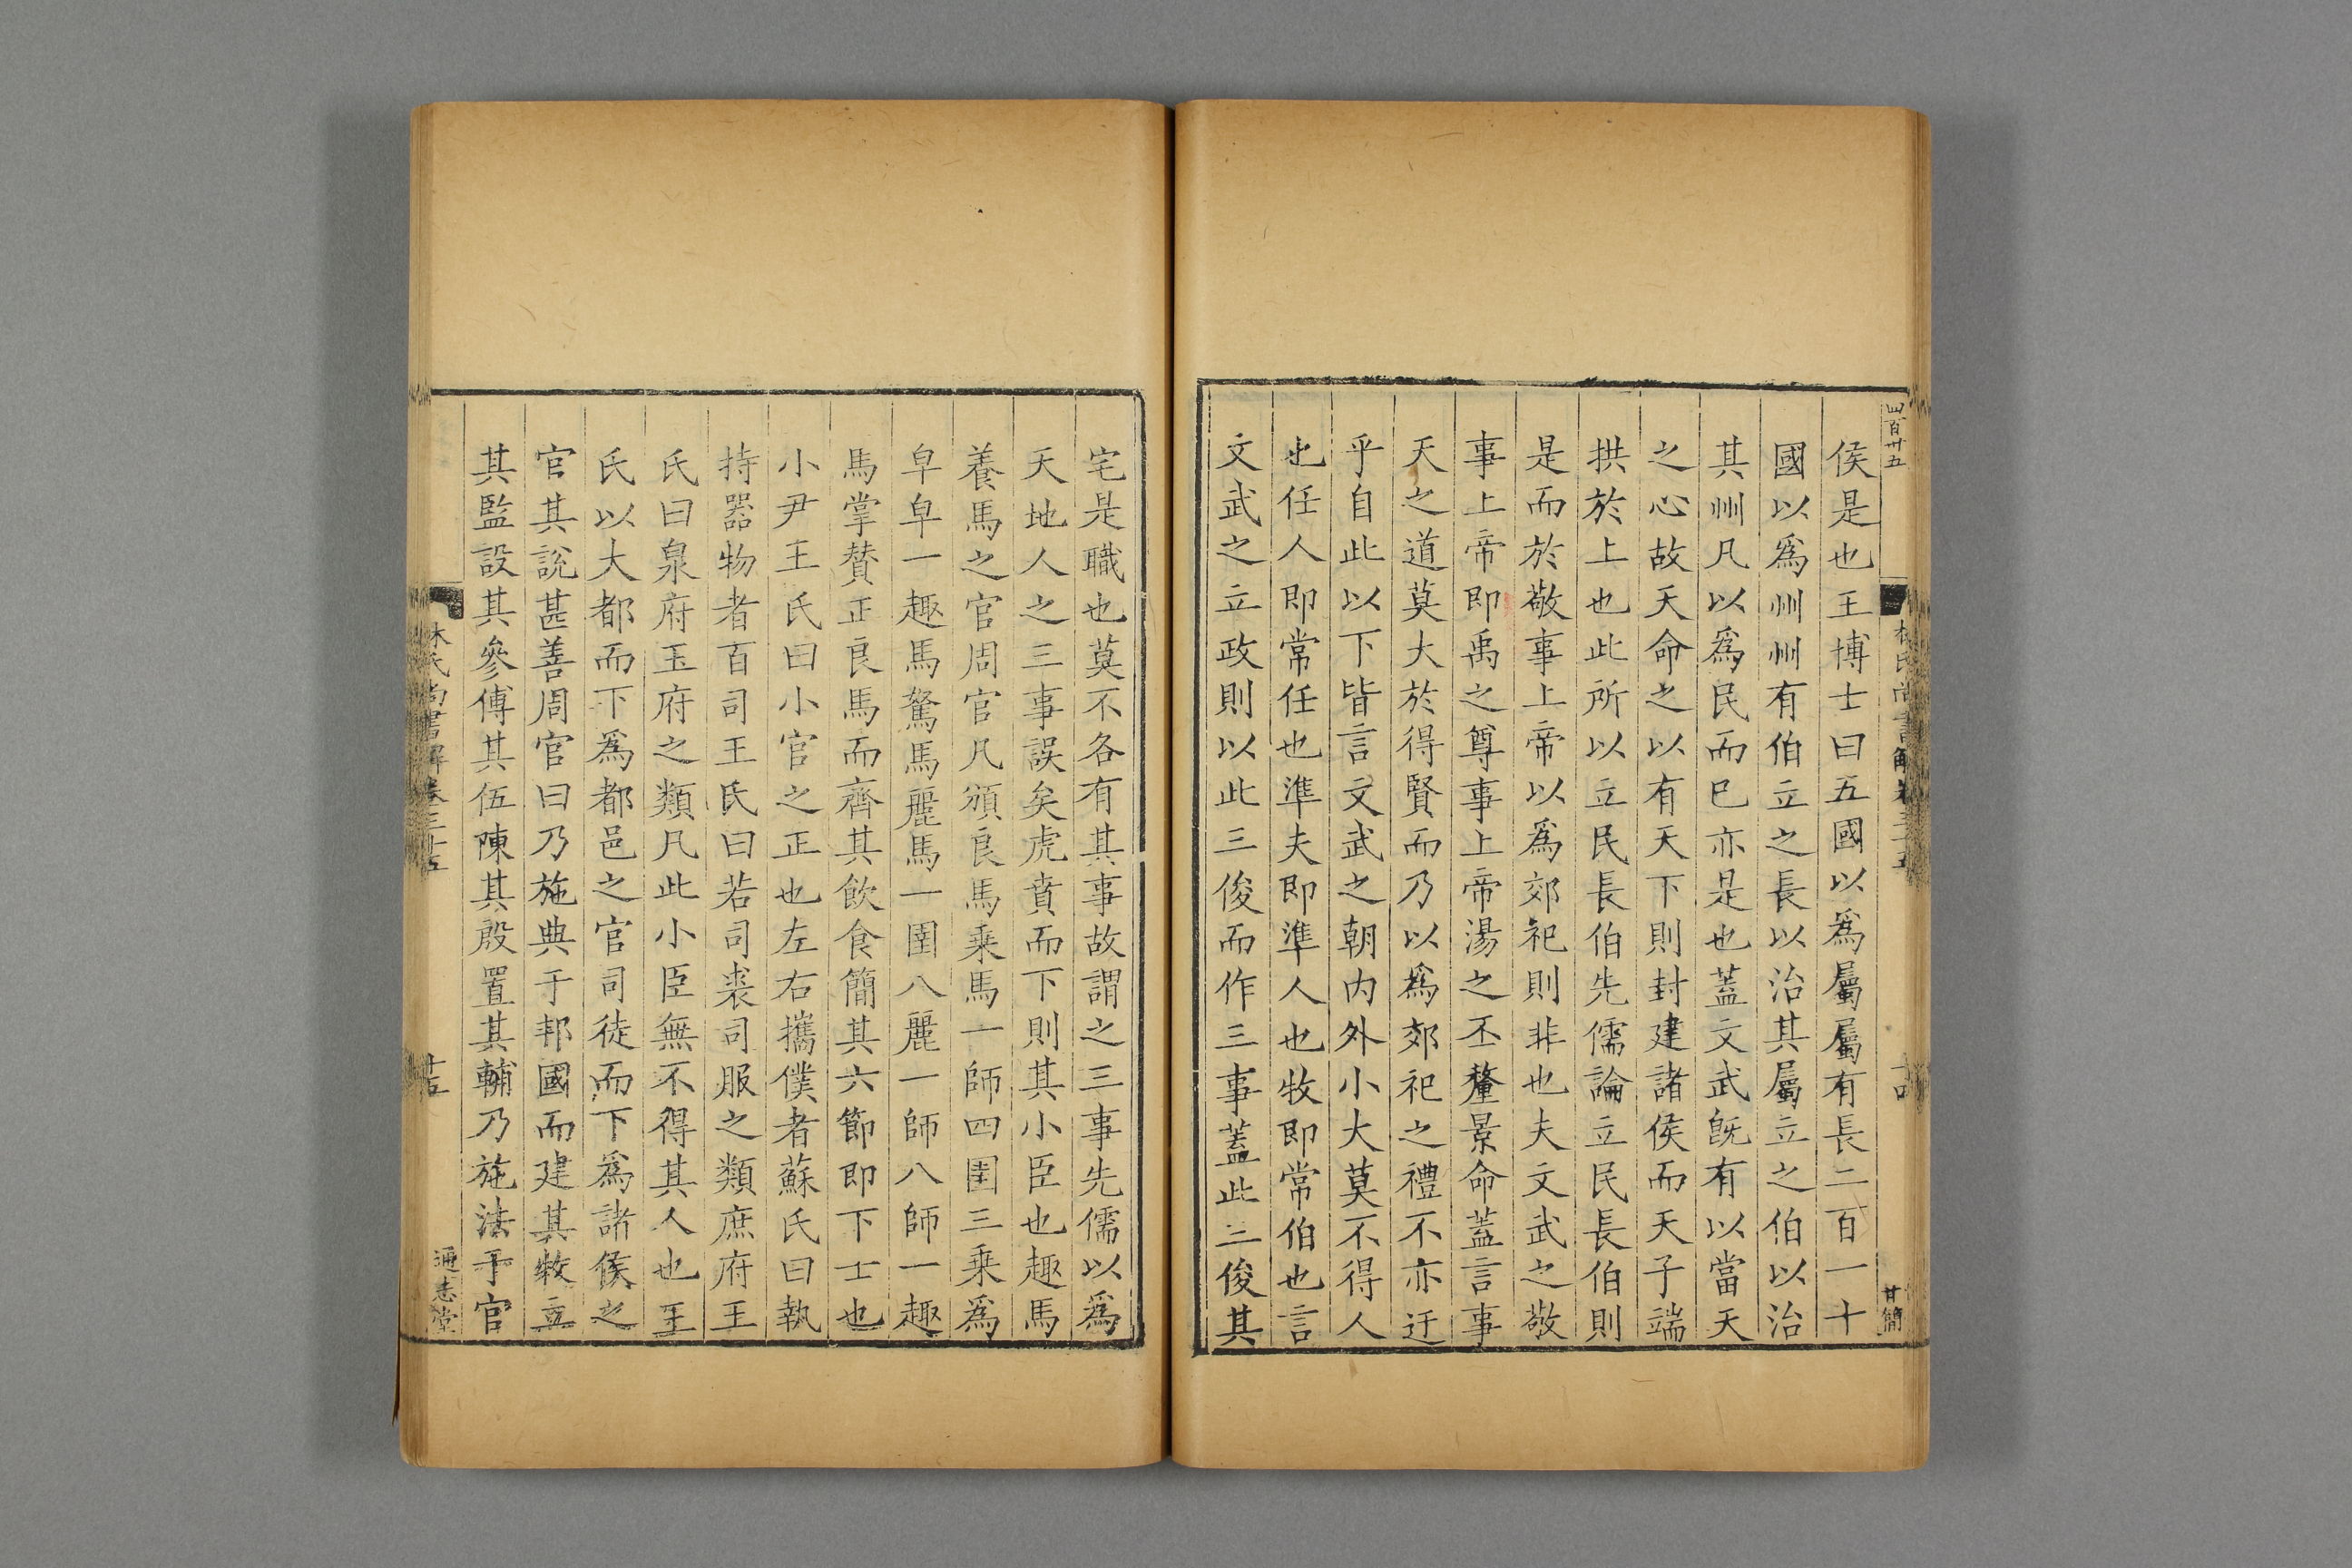 四百廿五
甘簡
侯是也王博士曰五國以爲屬屬有長二百一十
國以爲州州有伯立之長以治其屬立之伯以治
其州凡以爲民而已亦是也蓋文武旣有以當天
之心故天命之以有天下則封建諸侯而天子端
拱於上也此所以立民長伯先儒論立民長伯則
是而於敬事上帝以爲郊祀則非也夫文武之敬
事上帝即禹之尊事上帝湯之丕釐景命蓋言事
天之道莫大於得賢而乃以爲郊祀之禮不亦迂
乎自此以下皆言文武之朝內外小大莫不得人
也任人即常任也準夫即準人也牧即常伯也言
文武之立政則以此三俊而作三事蓋此三俊其
宅是職也莫不各有其事故謂之三事先儒以爲
天地人之三事誤矣虎賁而下則其小臣也趣馬
養馬之官周官凡頒良馬乗馬一師四圉三乗爲
皁皁一趣馬駑馬麗馬一圉八麗一師八師一趣
馬掌賛正良馬而齊其飲食簡其六節即下士也
小尹王氏曰小官之正也左右攜僕者蘇氏曰執
持器物者百司王氏曰若司裘司服之類庶府王
氏曰泉府玉府之類凡此小臣無不得其人也王
氏以大都而下爲都邑之官司徒而下爲諸侯之
官其說甚善周官曰乃施典于邦國而建其牧立
其監設其參傅其伍陳其殷置其輔乃施法于官
林氏尚書解卷三十五
十五
通志堂